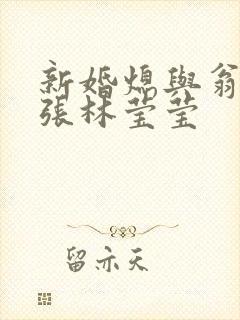 新婚熄與翁
張林莹莹
留亦天